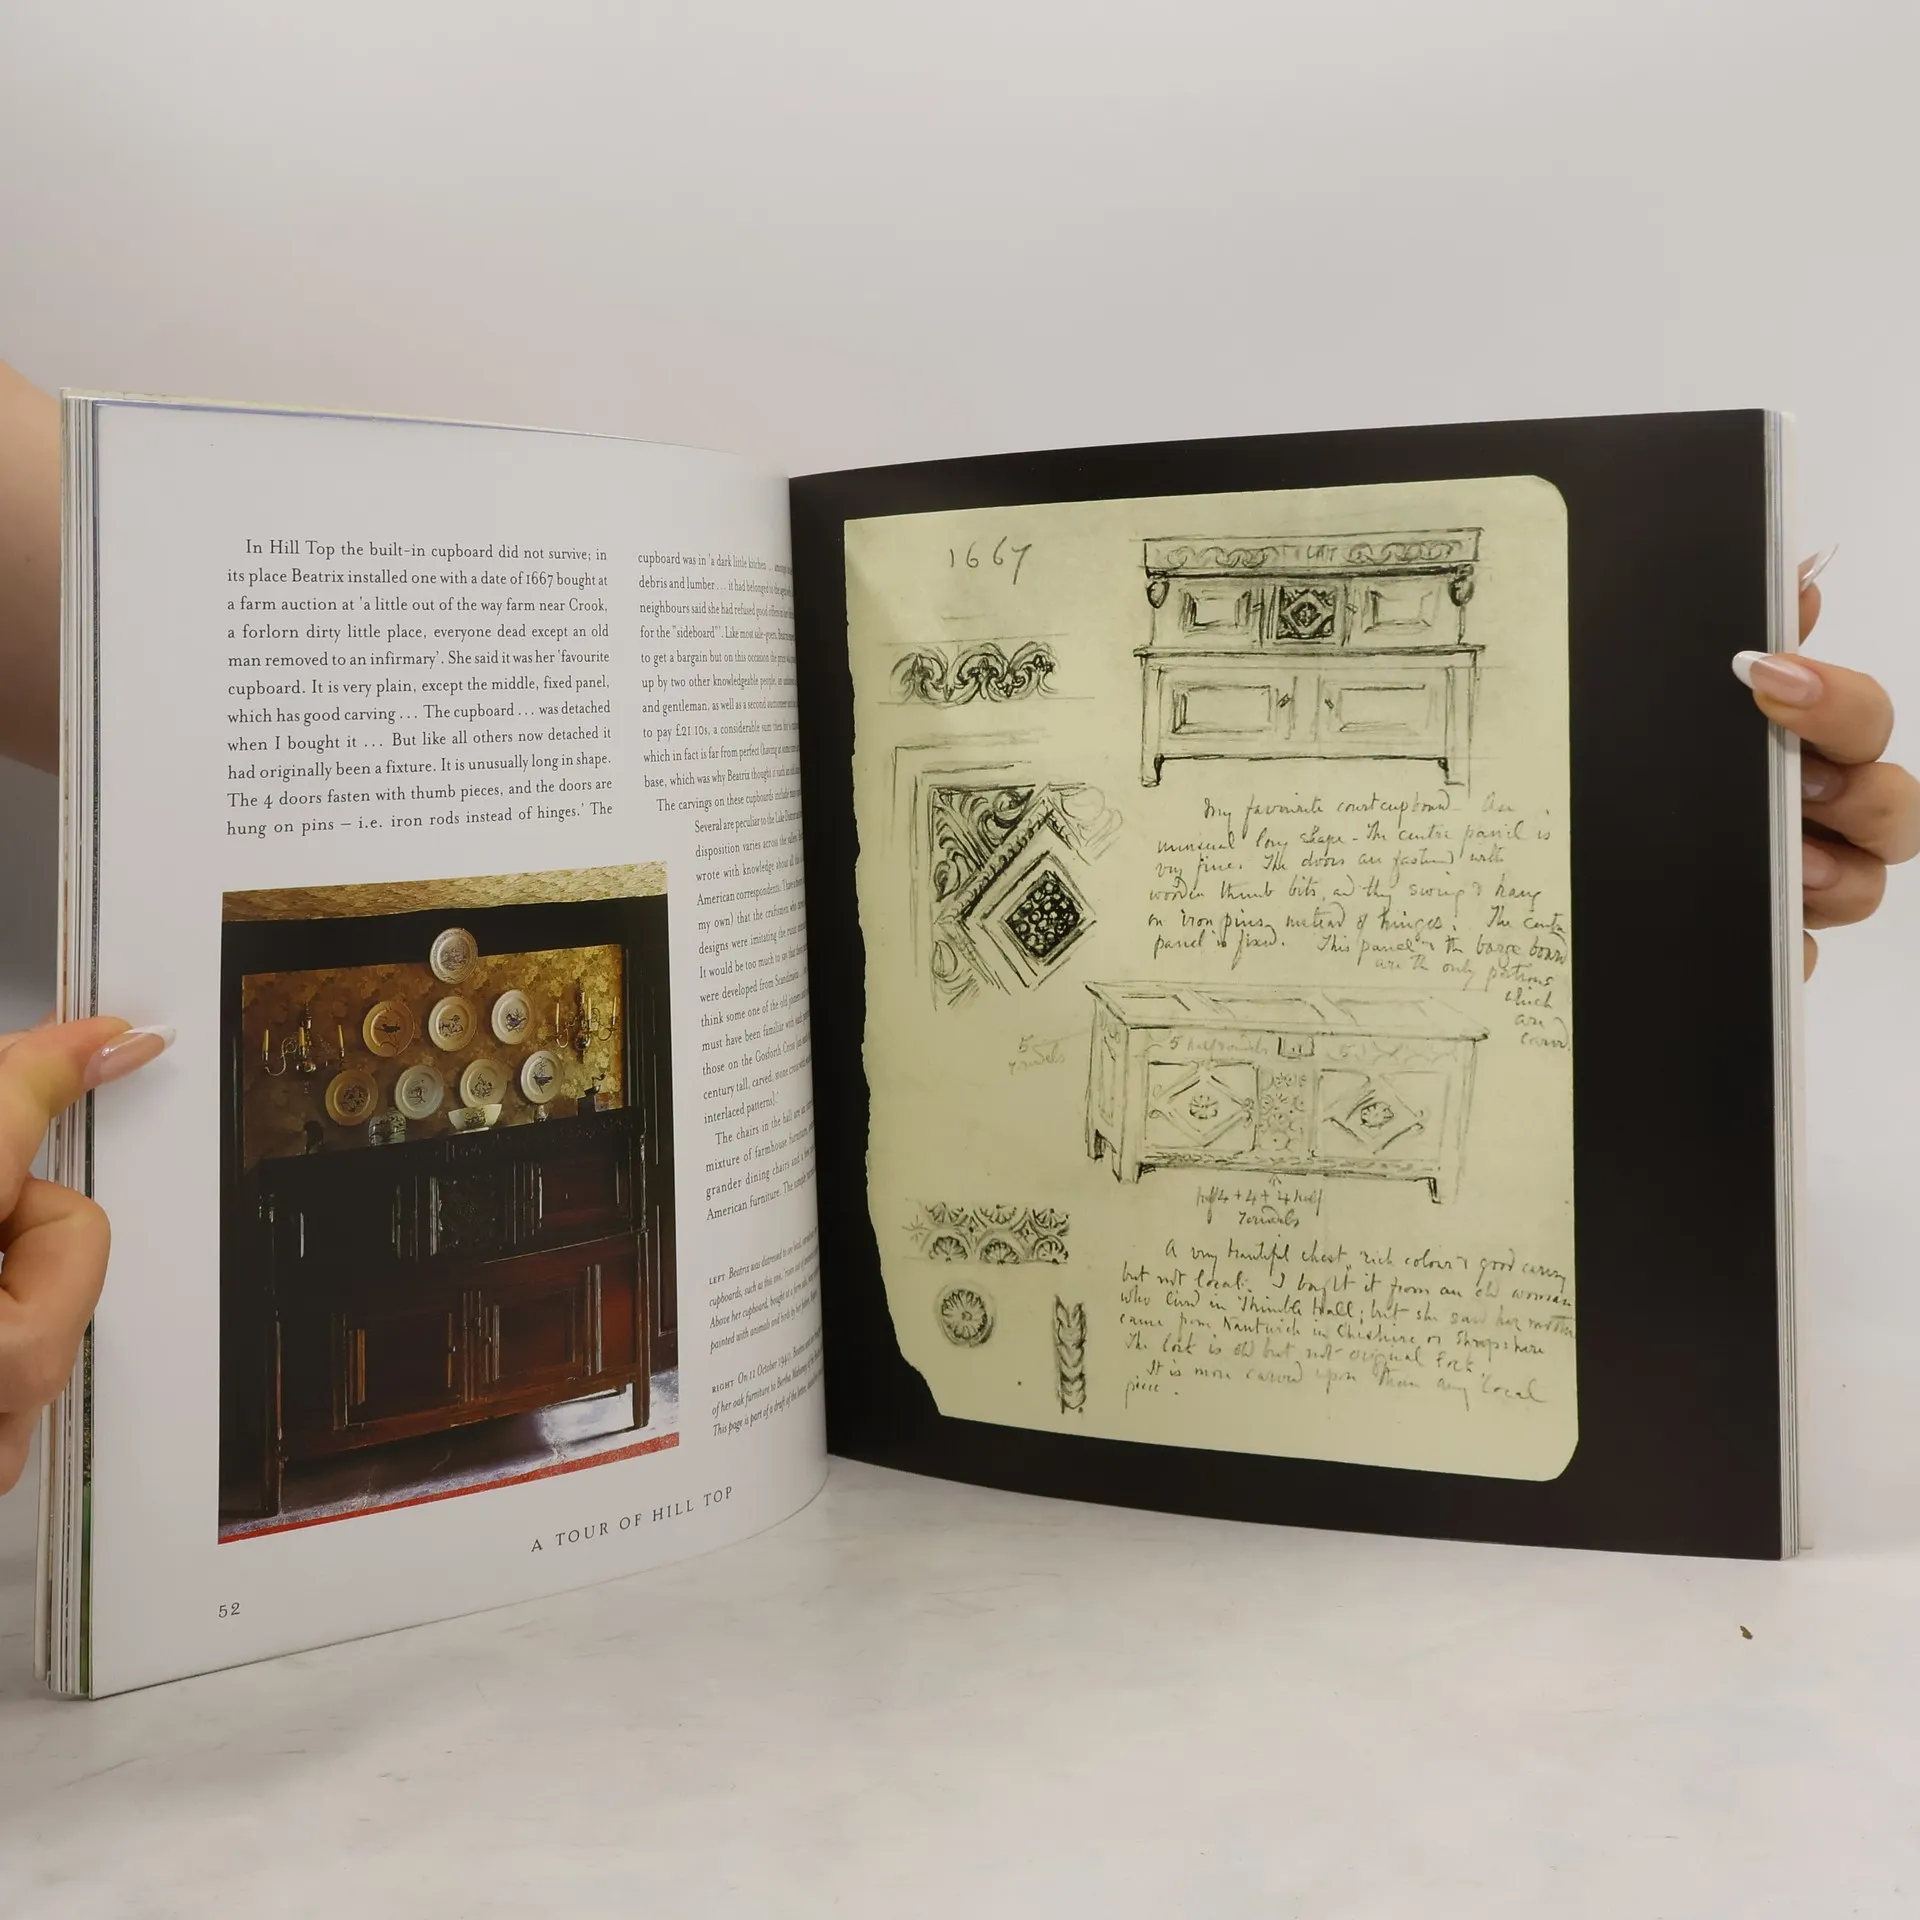 In Hill Top the built-in cupboard did not survive; in
its place Beatrix installed one with a date of 1667 bought at
a farm auction at 'a little out of the way farm near Crook,
a forlorn dirty little place, everyone dead except an old
man removed to an infirmary'. She said it was her 'favourite
cupboard. It is very plain, except the middle, fixed panel,
which has good carving ... The cupboard ... was detached
when I bought it ... But like all others now detached it
had originally been a fixture. It is unusually long in shape.
The 4 doors fasten with thumb pieces, and the doors are
hung on pins – i.e. iron rods instead of hinges.' The
cupboard was in 'a dark little kitchen ... among
debris and lumber ... it had belonged to the
neighbours said she had refused good offers
for the "sideboard"'. Like most sale-goers, Beatrix
to get a bargain but on this occasion the price
up by two other knowledgeable people,
and gentleman, as well as a second
to pay £21 10s, a considerable sum then
which in fact is far from perfect (having at some
base, which was why Beatrix thought it
The carvings on these cupboards include
Several are peculiar to the Lake District
disposition varies across the valleys.
wrote with knowledge about all
American correspondents: 'I have
my own) that the craftsmen who
designs were imitating the runic
It would be too much to say that
were developed from Scandinavia
think some one of the old
must have been familiar with such
those on the Gosforth Cross
century tall, carved, stone cross with
interlaced patterns].'
The chairs in the hall are an
mixture of farmhouse furniture,
grander dining chairs and a few
American furniture. The
LEFT Beatrix was distressed to see local,
cupboards, such as this one,
Above her cupboard, bought at a farm sale,
painted with animals and birds by her father,
RIGHT On 11 October 1940, Beatrix
of her oak furniture to Bertha Mahony
This page is part of a draft of the letter,
A TOUR OF HILL TOP
52
1667
My favourite court cupboard – An
unusual long shape – The centre panel is
very fine. The doors are fastened with
wooden thumb bits, and they swing & hang
on iron pins, instead of hinges. The centre
panel is fixed. This panel & the barge board
are the only portions
which
are
carved.
5
roundels
5 half roundels
5
half 4 + 4 + 4 half
roundels
A very beautiful chest, rich colour & good carving
but not local. I bought it from an old woman
who lived in Thimble Hall; but she said her mother
came from Nantwich in Cheshire or Shropshire
The lock is old but not original
It is more carved upon than any local
piece.